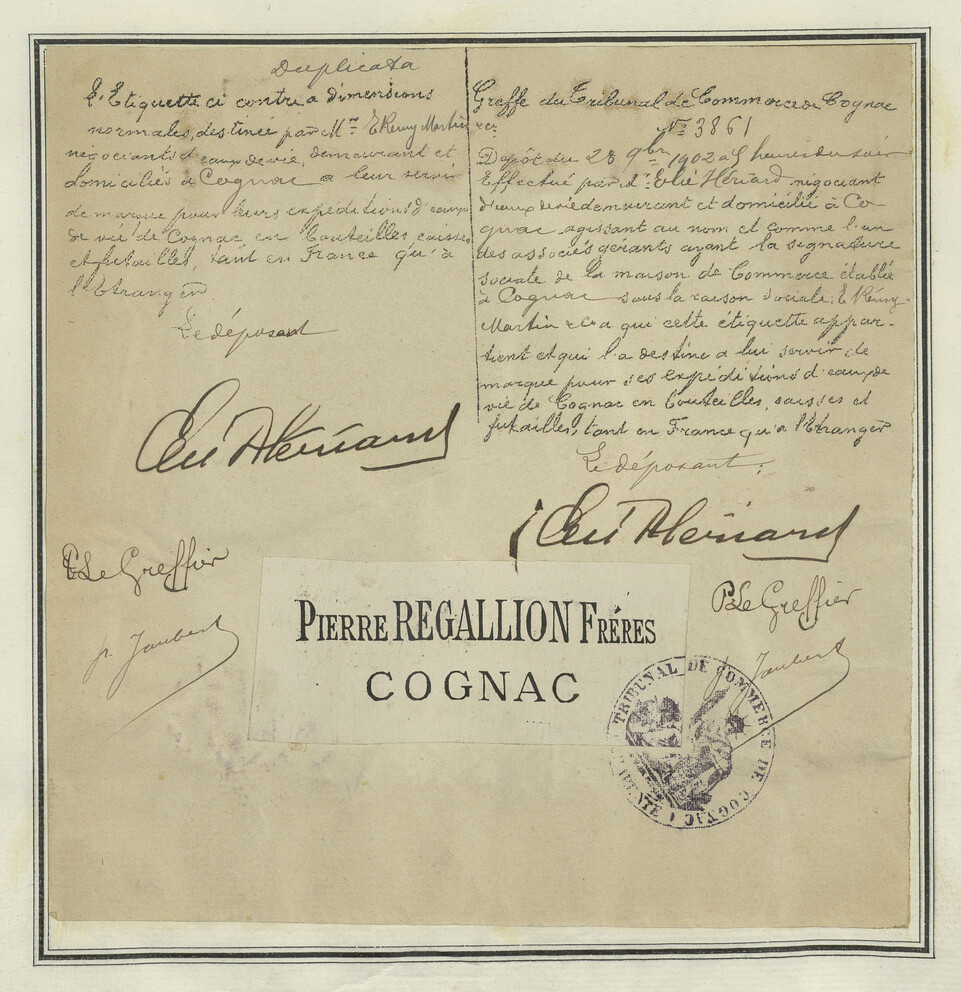 Duplicata
L'Etiquette ci contre a dimensions
normales, destinée par Mrs E Remy Martin & Co
négociants d'eaux de vie, demeurant et
domiciliés à Cognac a leur servir
de marque pour leurs expéditions d'eaux
de vie de Cognac en bouteilles, caisses
et futailles, tant en France qu'à
l'Etranger
Le déposant
Elie Hériard
P. Le Greffier
p. Jaubert
Greffe du Tribunal de Commerce de Cognac
No 3861
Dépôt du 28 9bre 1902 à 5 heures du soir
Effectué par Mr Elie Hériard négociant
d'eaux de vie demeurant et domicilié à Co-
gnac agissant au nom et comme l'un
des associés gérants ayant la signature
sociale de la maison de Commerce établie
à Cognac sous la raison sociale: E Rémy
Martin & Co a qui cette étiquette appar-
tient et qui l'a destine a lui servir de
marque pour ses expéditions d'eaux de
vie de Cognac en bouteilles, caisses et
futailles, tant en France qu'a l'Etranger
Le déposant:
Elie Hériard
P. Le Greffier
p. Jaubert
PIERRE REGALLION FRÉRES
COGNAC
TRIBUNAL DE COMMERCE DE COGNAC